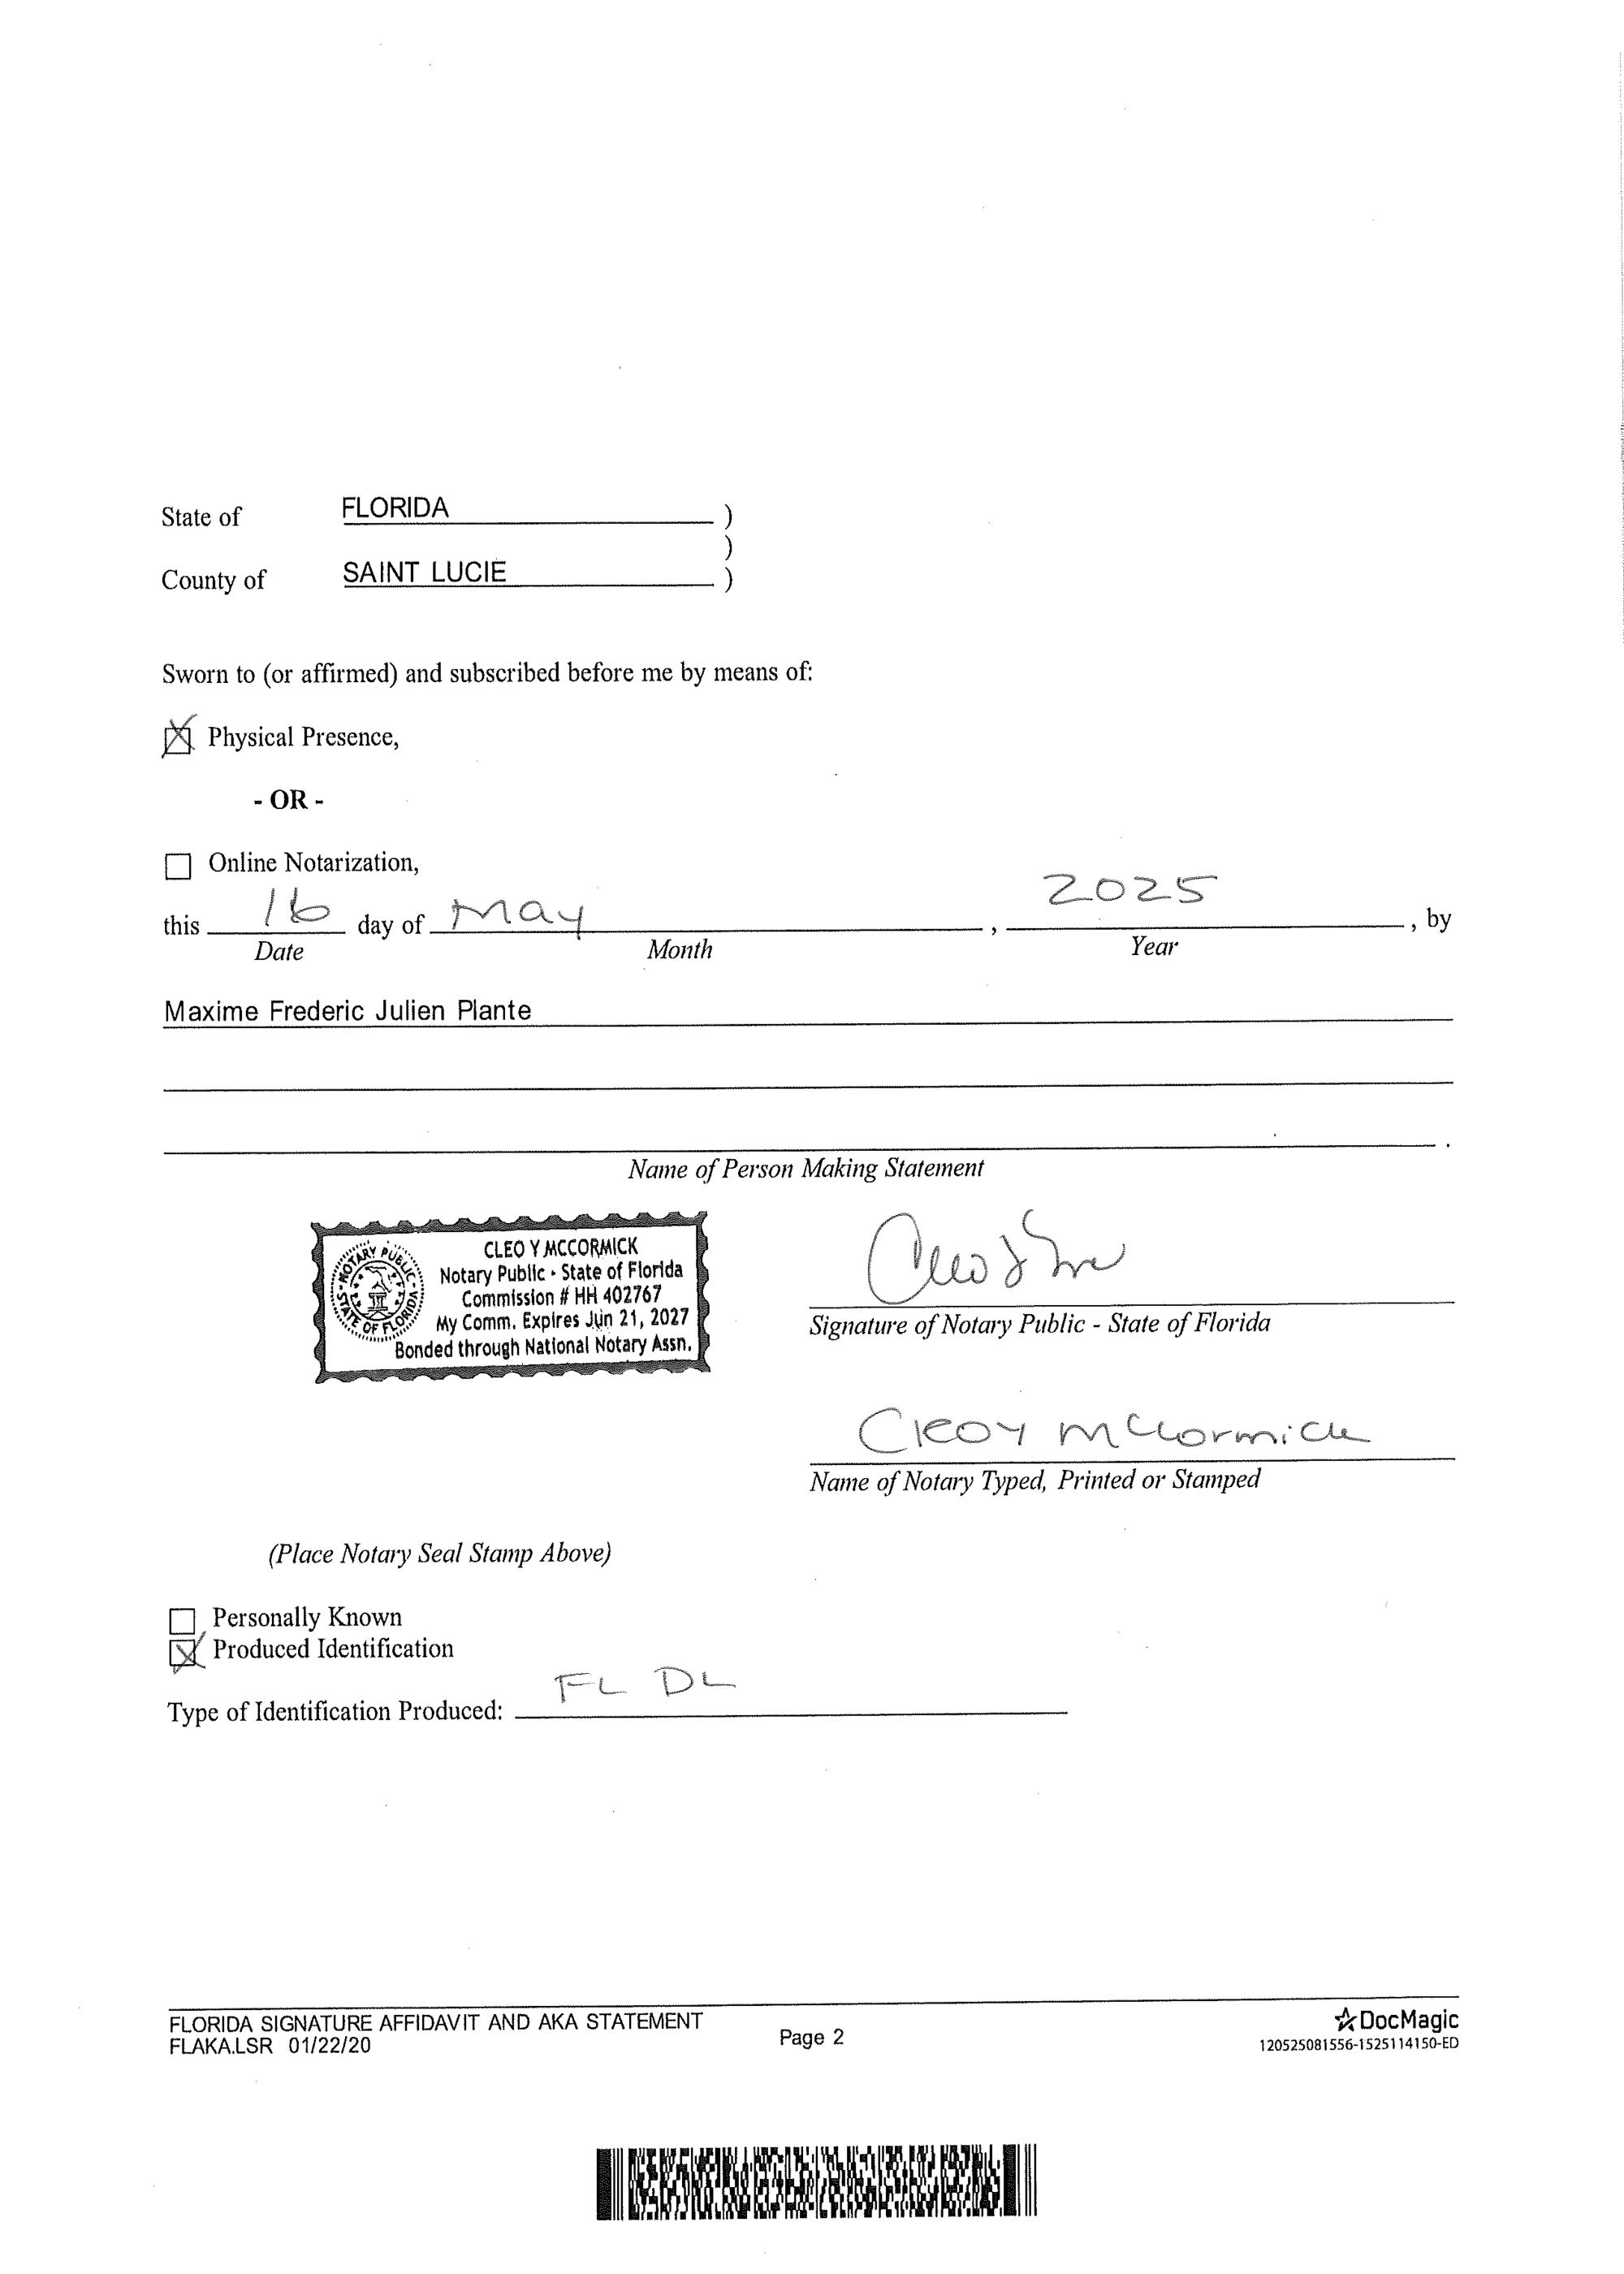 State of FLORIDA )
)
County of SAINT LUCIE )
Sworn to (or affirmed) and subscribed before me by means of:
Physical Presence,
- OR -
Online Notarization,
this 16 day of May , 2025 , by
Date Month Year
Maxime Frederic Julien Plante
.
Name of Person Making Statement
CLEO Y MCCORMICK
Notary Public - State of Florida
Commission # HH 402767
My Comm. Expires Jun 21, 2027
Bonded through National Notary Assn.
NOTARY PUBLIC
STATE OF FLORIDA
Signature of Notary Public - State of Florida
Cleo Y McCormick
Name of Notary Typed, Printed or Stamped
(Place Notary Seal Stamp Above)
Personally Known
Produced Identification
Type of Identification Produced: FL DL
FLORIDA SIGNATURE AFFIDAVIT AND AKA STATEMENT
FLAKA.LSR 01/22/20
Page 2
DocMagic
120525081556-1525114150-ED